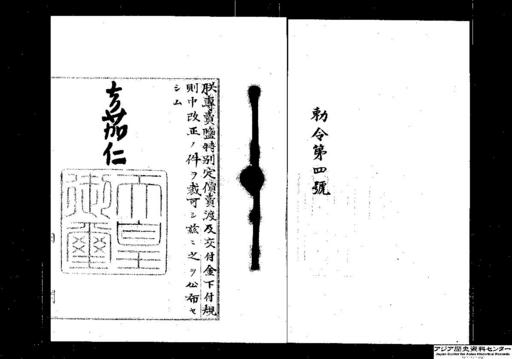 勅令第四號
朕專賣鹽特別定價賣渡及交付金下付規
則中改正ノ件ヲ裁可シ茲ニ之ヲ公布セ
シム
嘉仁
天皇
御璽
アジア歴史資料センター
Japan Center for Asian Historical Records